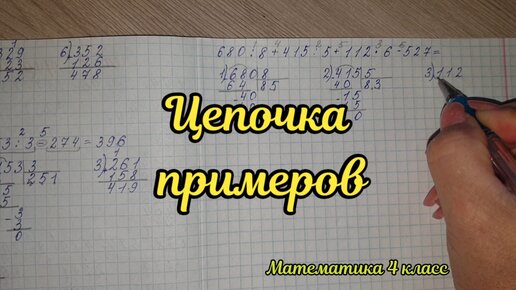 329
23
52
6) 352
126
478
680 : 8 + 415 : 5 + 112 · 6 - 527 =
1) 680 8
64 85
-40
2) 415 5
40 83
-15
0
3) 112
Цепочка
примеров
2 5
3 : 3 - 274 = 396
53 3
251
3) 261
158
419
-3
3
0
Математика 4 класс